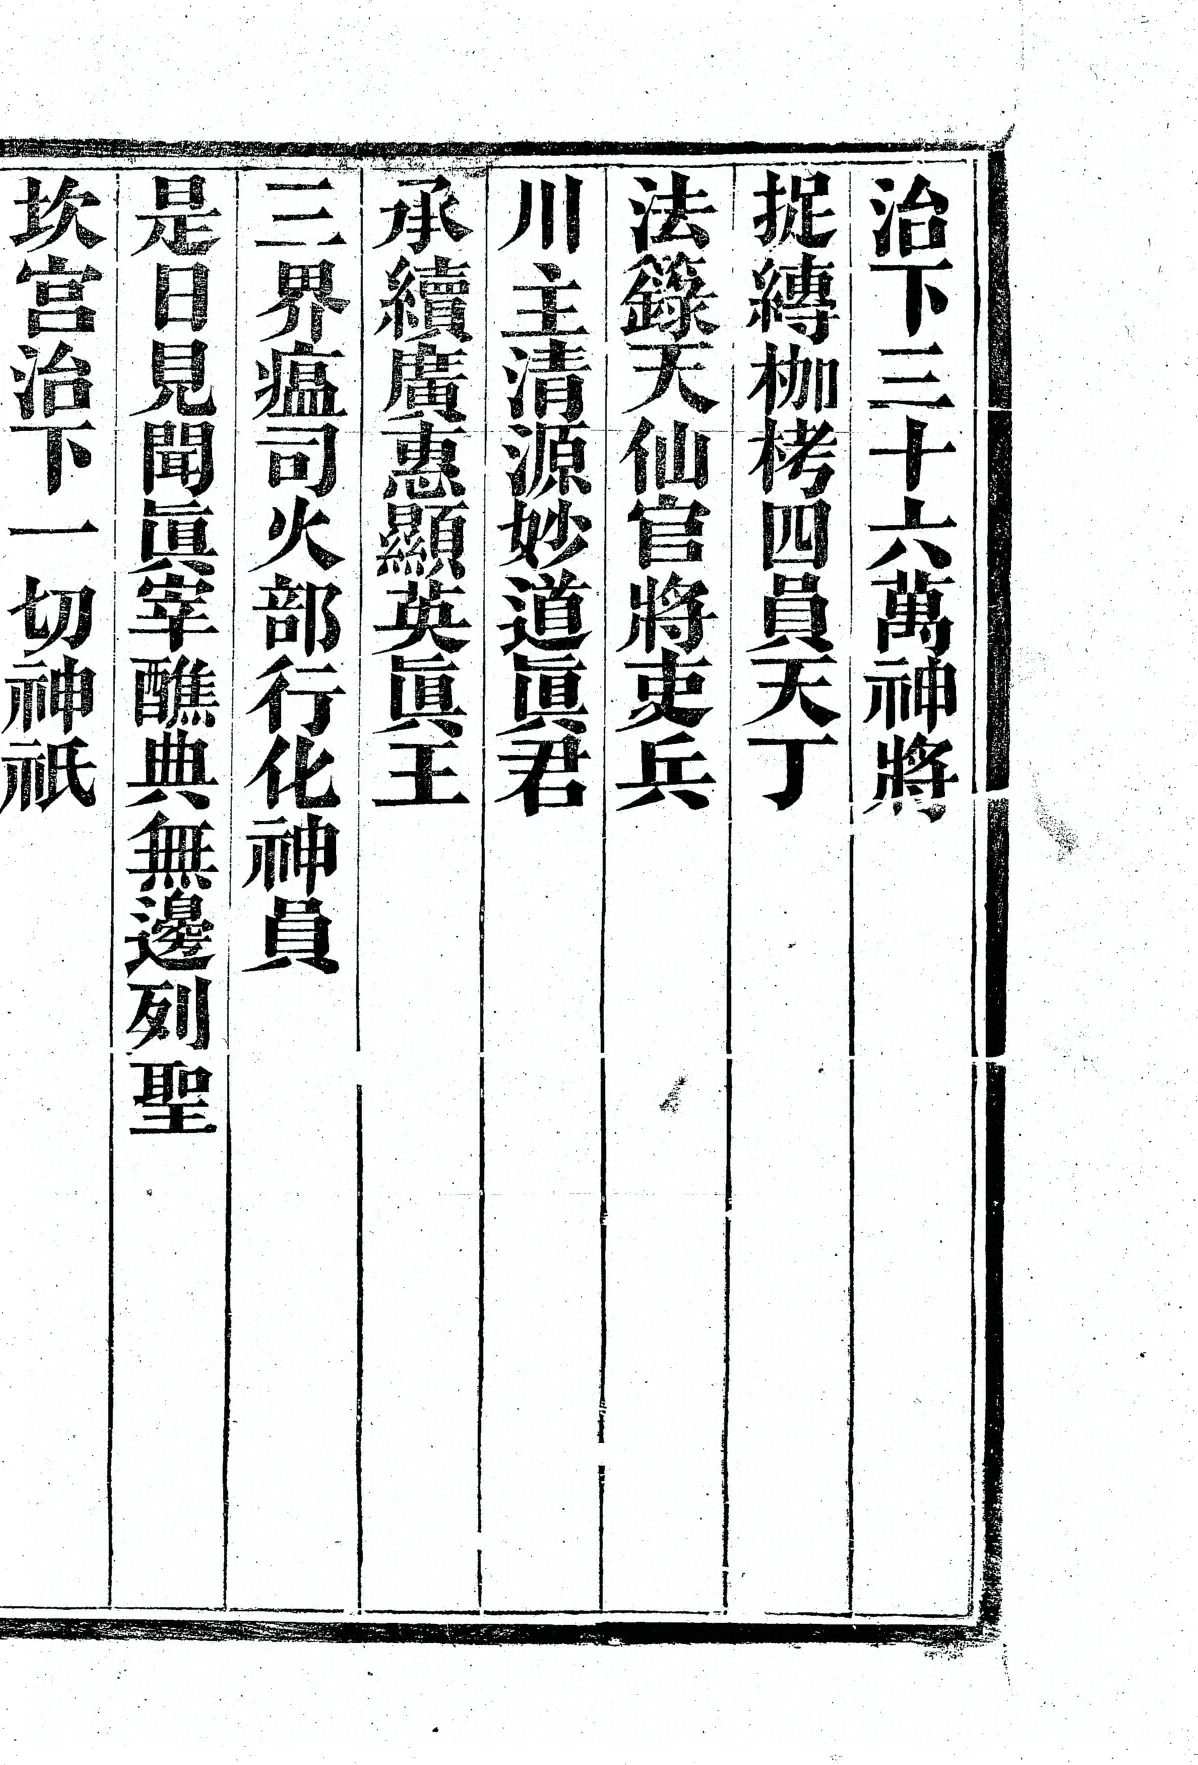 治下三十六萬神將
捉縛枷栲四員天丁
法籙天仙官將吏兵
川主清源妙道眞君
承續廣惠顯英眞王
三界瘟司火部行化神員
是日見聞眞宰醮典無邊列聖
坎宫治下一切神祇